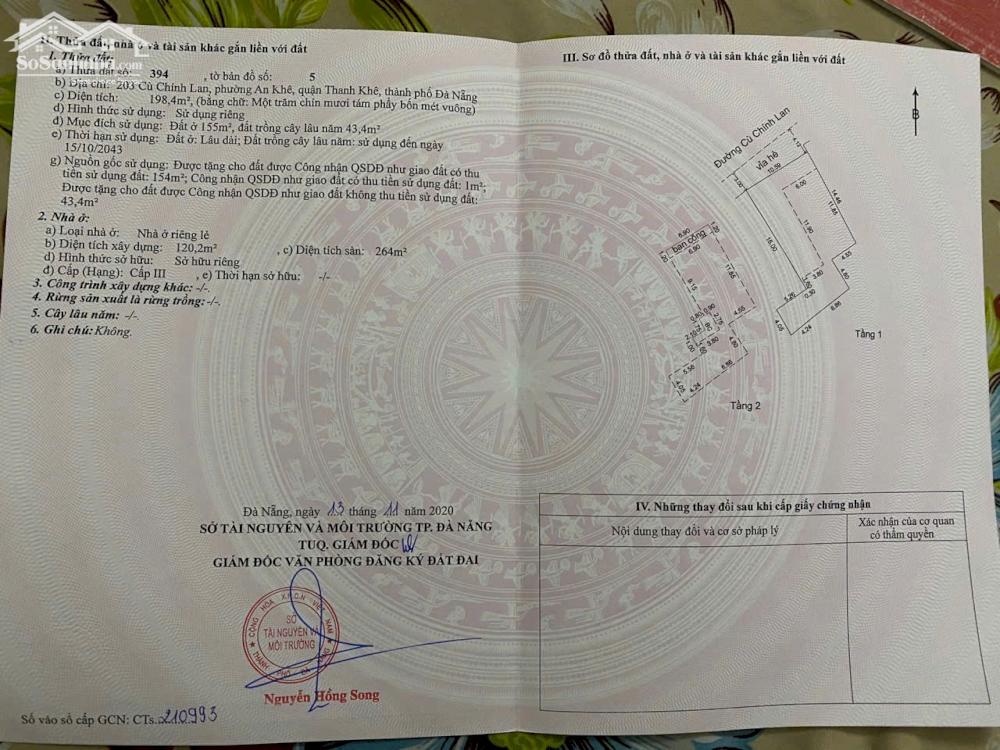 SoSanhNha
II. Thửa đất, nhà ở và tài sản khác gắn liền với đất
1. Thửa đất:
a) Thửa đất số: 394 , tờ bản đồ số: 5
b) Địa chỉ: 203 Cù Chính Lan, phường An Khê, quận Thanh Khê, thành phố Đà Nẵng
c) Diện tích: 198,4m², (bằng chữ: Một trăm chín mươi tám phẩy bốn mét vuông)
d) Hình thức sử dụng: Sử dụng riêng
đ) Mục đích sử dụng: Đất ở 155m², đất trồng cây lâu năm 43,4m²
e) Thời hạn sử dụng: Đất ở: Lâu dài; Đất trồng cây lâu năm: sử dụng đến ngày
15/10/2043
g) Nguồn gốc sử dụng: Được tặng cho đất được Công nhận QSDĐ như giao đất có thu
tiền sử dụng đất: 154m²; Công nhận QSDĐ như giao đất có thu tiền sử dụng đất: 1m²;
Được tặng cho đất được Công nhận QSDĐ như giao đất không thu tiền sử dụng đất:
43,4m²
2. Nhà ở:
a) Loại nhà ở: Nhà ở riêng lẻ
b) Diện tích xây dựng: 120,2m² , c) Diện tích sàn: 264m²
d) Hình thức sở hữu: Sở hữu riêng
đ) Cấp (Hạng): Cấp III , e) Thời hạn sở hữu: -/-
3. Công trình xây dựng khác: -/-.
4. Rừng sản xuất là rừng trồng: -/-.
5. Cây lâu năm: -/-
6. Ghi chú: Không.
Đà Nẵng, ngày 13 tháng 11 năm 2020
SỞ TÀI NGUYÊN VÀ MÔI TRƯỜNG TP. ĐÀ NẴNG
TUQ. GIÁM ĐỐC
GIÁM ĐỐC VĂN PHÒNG ĐĂNG KÝ ĐẤT ĐAI
CỘNG HÒA X.H.C.N VIỆT NAM
SỞ
TÀI NGUYÊN VÀ
MÔI TRƯỜNG
THÀNH PHỐ ĐÀ NẴNG
Nguyễn Hồng Song
Số vào sổ cấp GCN: CTs. 210993
III. Sơ đồ thửa đất, nhà ở và tài sản khác gắn liền với đất
B
Đường Cù Chính Lan
vỉa hè
4.13
3.00
10.59
6.00
14.46
11.85
11.90
16.50
4.55
4.80
3.80
0.30
5.26
4.05
4.24
6.86
Tầng 1
6.90
ban công
6.90
1.20
11.85
9.15
4.55
0.80
0.90
2.75
2.10
1.00
3.80
4.80
5.56
4.05
4.24
6.86
Tầng 2
IV. Những thay đổi sau khi cấp giấy chứng nhận
Nội dung thay đổi và cơ sở pháp lý
Xác nhận của cơ quan
có thẩm quyền